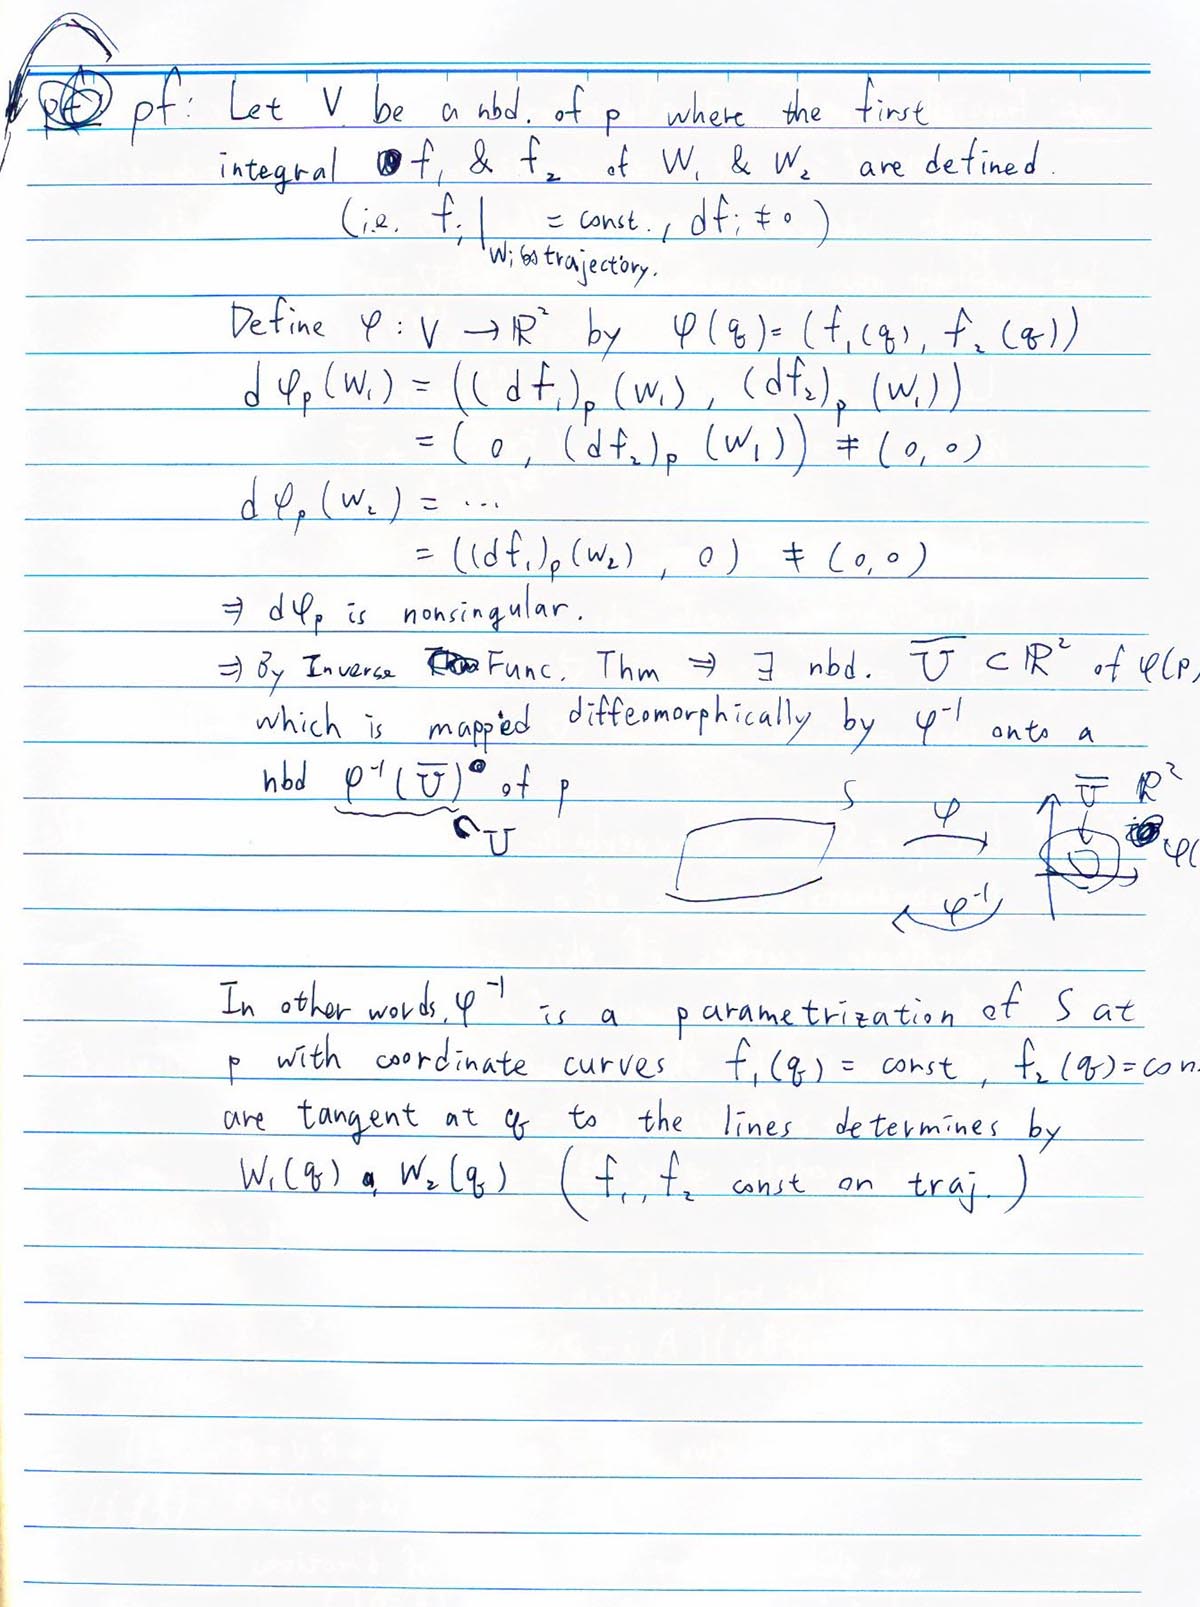 pf: Let V be a nbd. of p where the first
integral f₁ & f₂ of W₁ & W₂ are defined.
(i.e. fᵢ|_{Wᵢ's trajectory.} = const., dfᵢ ≠ 0)
Define φ : V → ℝ² by φ(q) = (f₁(q), f₂(q))
dφ_p(W₁) = ((df₁)_p (W₁), (df₂)_p (W₁))
= (0, (df₂)_p (W₁)) ≠ (0, 0)
dφ_p(W₂) = ...
= ((df₁)_p (W₂), 0) ≠ (0, 0)
⇒ dφ_p is nonsingular.
⇒ By Inverse Func. Thm ⇒ ∃ nbd. U̅ ⊂ ℝ² of φ(p)
which is mapped diffeomorphically by φ⁻¹ onto a
nbd φ⁻¹(U̅) of p
U
S φ U̅ ℝ²
φ(
φ⁻¹
In other words, φ⁻¹ is a parametrization of S at
p with coordinate curves f₁(q) = const, f₂(q) = con
are tangent at q to the lines determines by
W₁(q), W₂(q) (f₁, f₂ const on traj.)